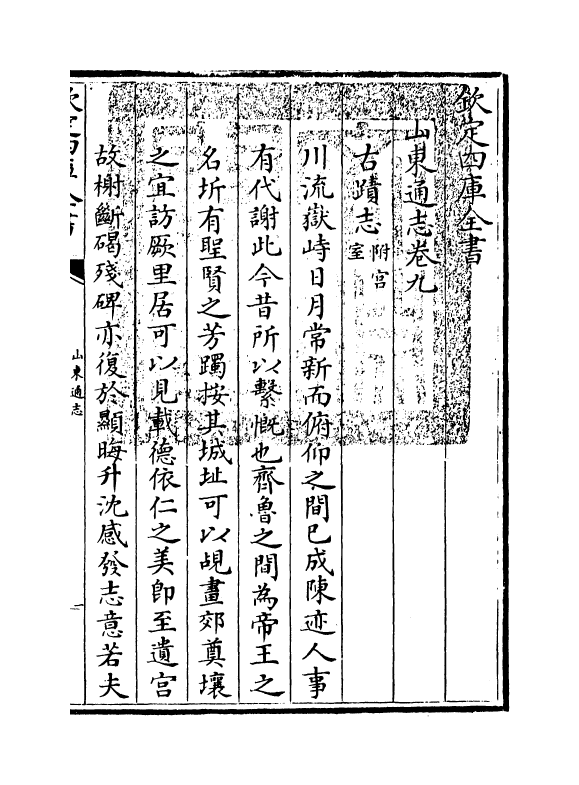 欽定四庫全書
山東通志卷九
古蹟志附宮室
川流嶽峙日月常新而俯仰之間已成陳迹人事
有代謝此今昔所以繫慨也齊魯之間為帝王之
名圻有聖賢之芳躅按其城址可以覘畫郊奠壤
之宜訪厥里居可以見載德依仁之美即至遺宫
故榭斷碣殘碑亦復於顯晦升沈感發志意若夫
欽定四庫全書
山東通志
一